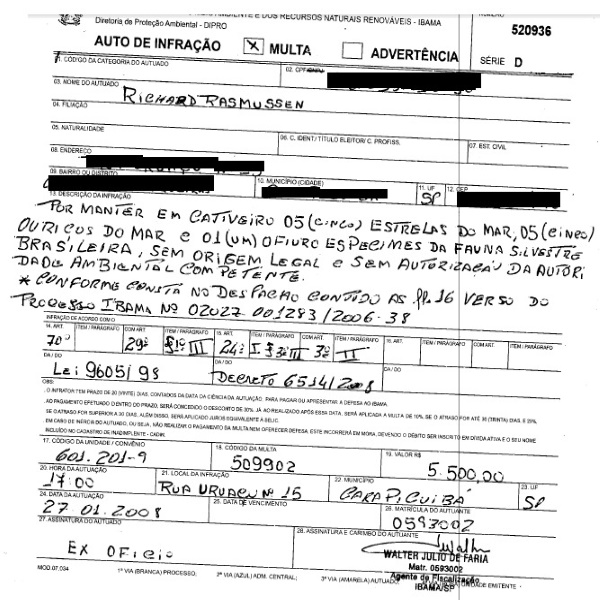 AMBIENTE E DOS RECURSOS NATURAIS RENOVÁVEIS - IBAMA
Diretoria de Proteção Ambiental - DIPRO
520936
AUTO DE INFRAÇÃO X MULTA ADVERTÊNCIA
SÉRIE D
1. CÓDIGO DA CATEGORIA DO AUTUADO
02. CPF
03. NOME DO AUTUADO
RICHARD RASMUSSEN
04. FILIAÇÃO
05. NATURALIDADE
06. C. IDENT./TÍTULO ELEITOR/C. PROFISS.
07. EST. CIVIL
08. ENDERECO
09. BAIRRO OU DISTRITO
10. MUNICÍPIO (CIDADE)
11. UF
SP
12. CEP
13. DESCRIÇÃO DA INFRAÇÃO
POR MANTER EM CATIVEIRO 05 (CINCO) ESTRELAS DO MAR, 05 (CINCO)
OURIÇOS DO MAR E 01 (UM) OFIURO ESPECIMES DA FAUNA SILVESTRE
BRASILEIRA, SEM ORIGEM LEGAL E SEM AUTORIZAÇÃO DA AUTORI
DADE AMBIENTAL COMPETENTE.
* CONFORME CONSTA NO DESPACHO CONTIDO AS fl. 16 VERSO DO
PROCESSO IBAMA Nº 02027-001283/2006-38
INFRAÇÃO DE ACORDO COM O
14. ART. ITEM / PARÁGRAFO COM ART. ITEM / PARÁGRAFO 15. ART. ITEM / PARÁGRAFO COM ART. ITEM / PARÁGRAFO 16. ART. ITEM / PARÁGRAFO COM ART. ITEM / PARÁGRAFO
70º 29º §1º III 24º I § 3º III 3º II
DA / DO DA / DO DA / DO
Lei 9605/98 DECRETO 6514/2008
OBS:
O INFRATOR TEM PRAZO DE 20 (VINTE) DIAS, CONTADOS DA DATA DA CIÊNCIA DA AUTUAÇÃO, PARA PAGAR OU APRESENTAR A DEFESA AO IBAMA.
AO PAGAMENTO EFETUADO DENTRO DO PRAZO, SERÁ CONCEDIDO O DESCONTO DE 30%, JÁ AO REALIZADO APÓS ESSA DATA, SERÁ APLICADA A MULTA DE 10%, SE O ATRASO FOR ATÉ 30 (TRINTA) DIAS, E 20%,
SE O ATRASO FOR SUPERIOR A 30 DIAS. ALÉM DISSO, SERÁ APLICADO JUROS EQUIVALENTE A SELIC.
EM CASO DE INÉRCIA DO AUTUADO, OU SEJA, NÃO REALIZAR O PAGAMENTO DA MULTA NEM OFERECER DEFESA, ESTE INCORRERÁ EM MORA, DEVENDO O DÉBITO SER INSCRITO EM DÍVIDA ATIVA E O SEU NOME
INCLUÍDO NO CADASTRO DE INADIMPLENTE - CADIN.
17. CÓDIGO DA UNIDADE / CONVÊNIO 18. CÓDIGO DA MULTA 19. VALOR R$
601.201-9 509902 5.500,00
20. HORA DA AUTUAÇÃO 21. LOCAL DA INFRAÇÃO 22. MUNICÍPIO 23. UF
17:00 RUA URUAÇU Nº 15 CARAPICUIBÁ SP
24. DATA DA AUTUAÇÃO 25. DATA DE VENCIMENTO 26. MATRÍCULA DO AUTUANTE
27.01.2008 0593002
27. ASSINATURA DO AUTUADO 28. ASSINATURA E CARIMBO DO AUTUANTE
EX OFICIO
WALTER JULIO DE FARIA
Matr. 0593002
Agente de Fiscalização
IBAMA/SP
MOD.07.034 1ª VIA (BRANCA) PROCESSO. 2ª VIA (AZUL) ADM. CENTRAL; 3ª VIA (AMARELA) AUTUADO EMITENTE